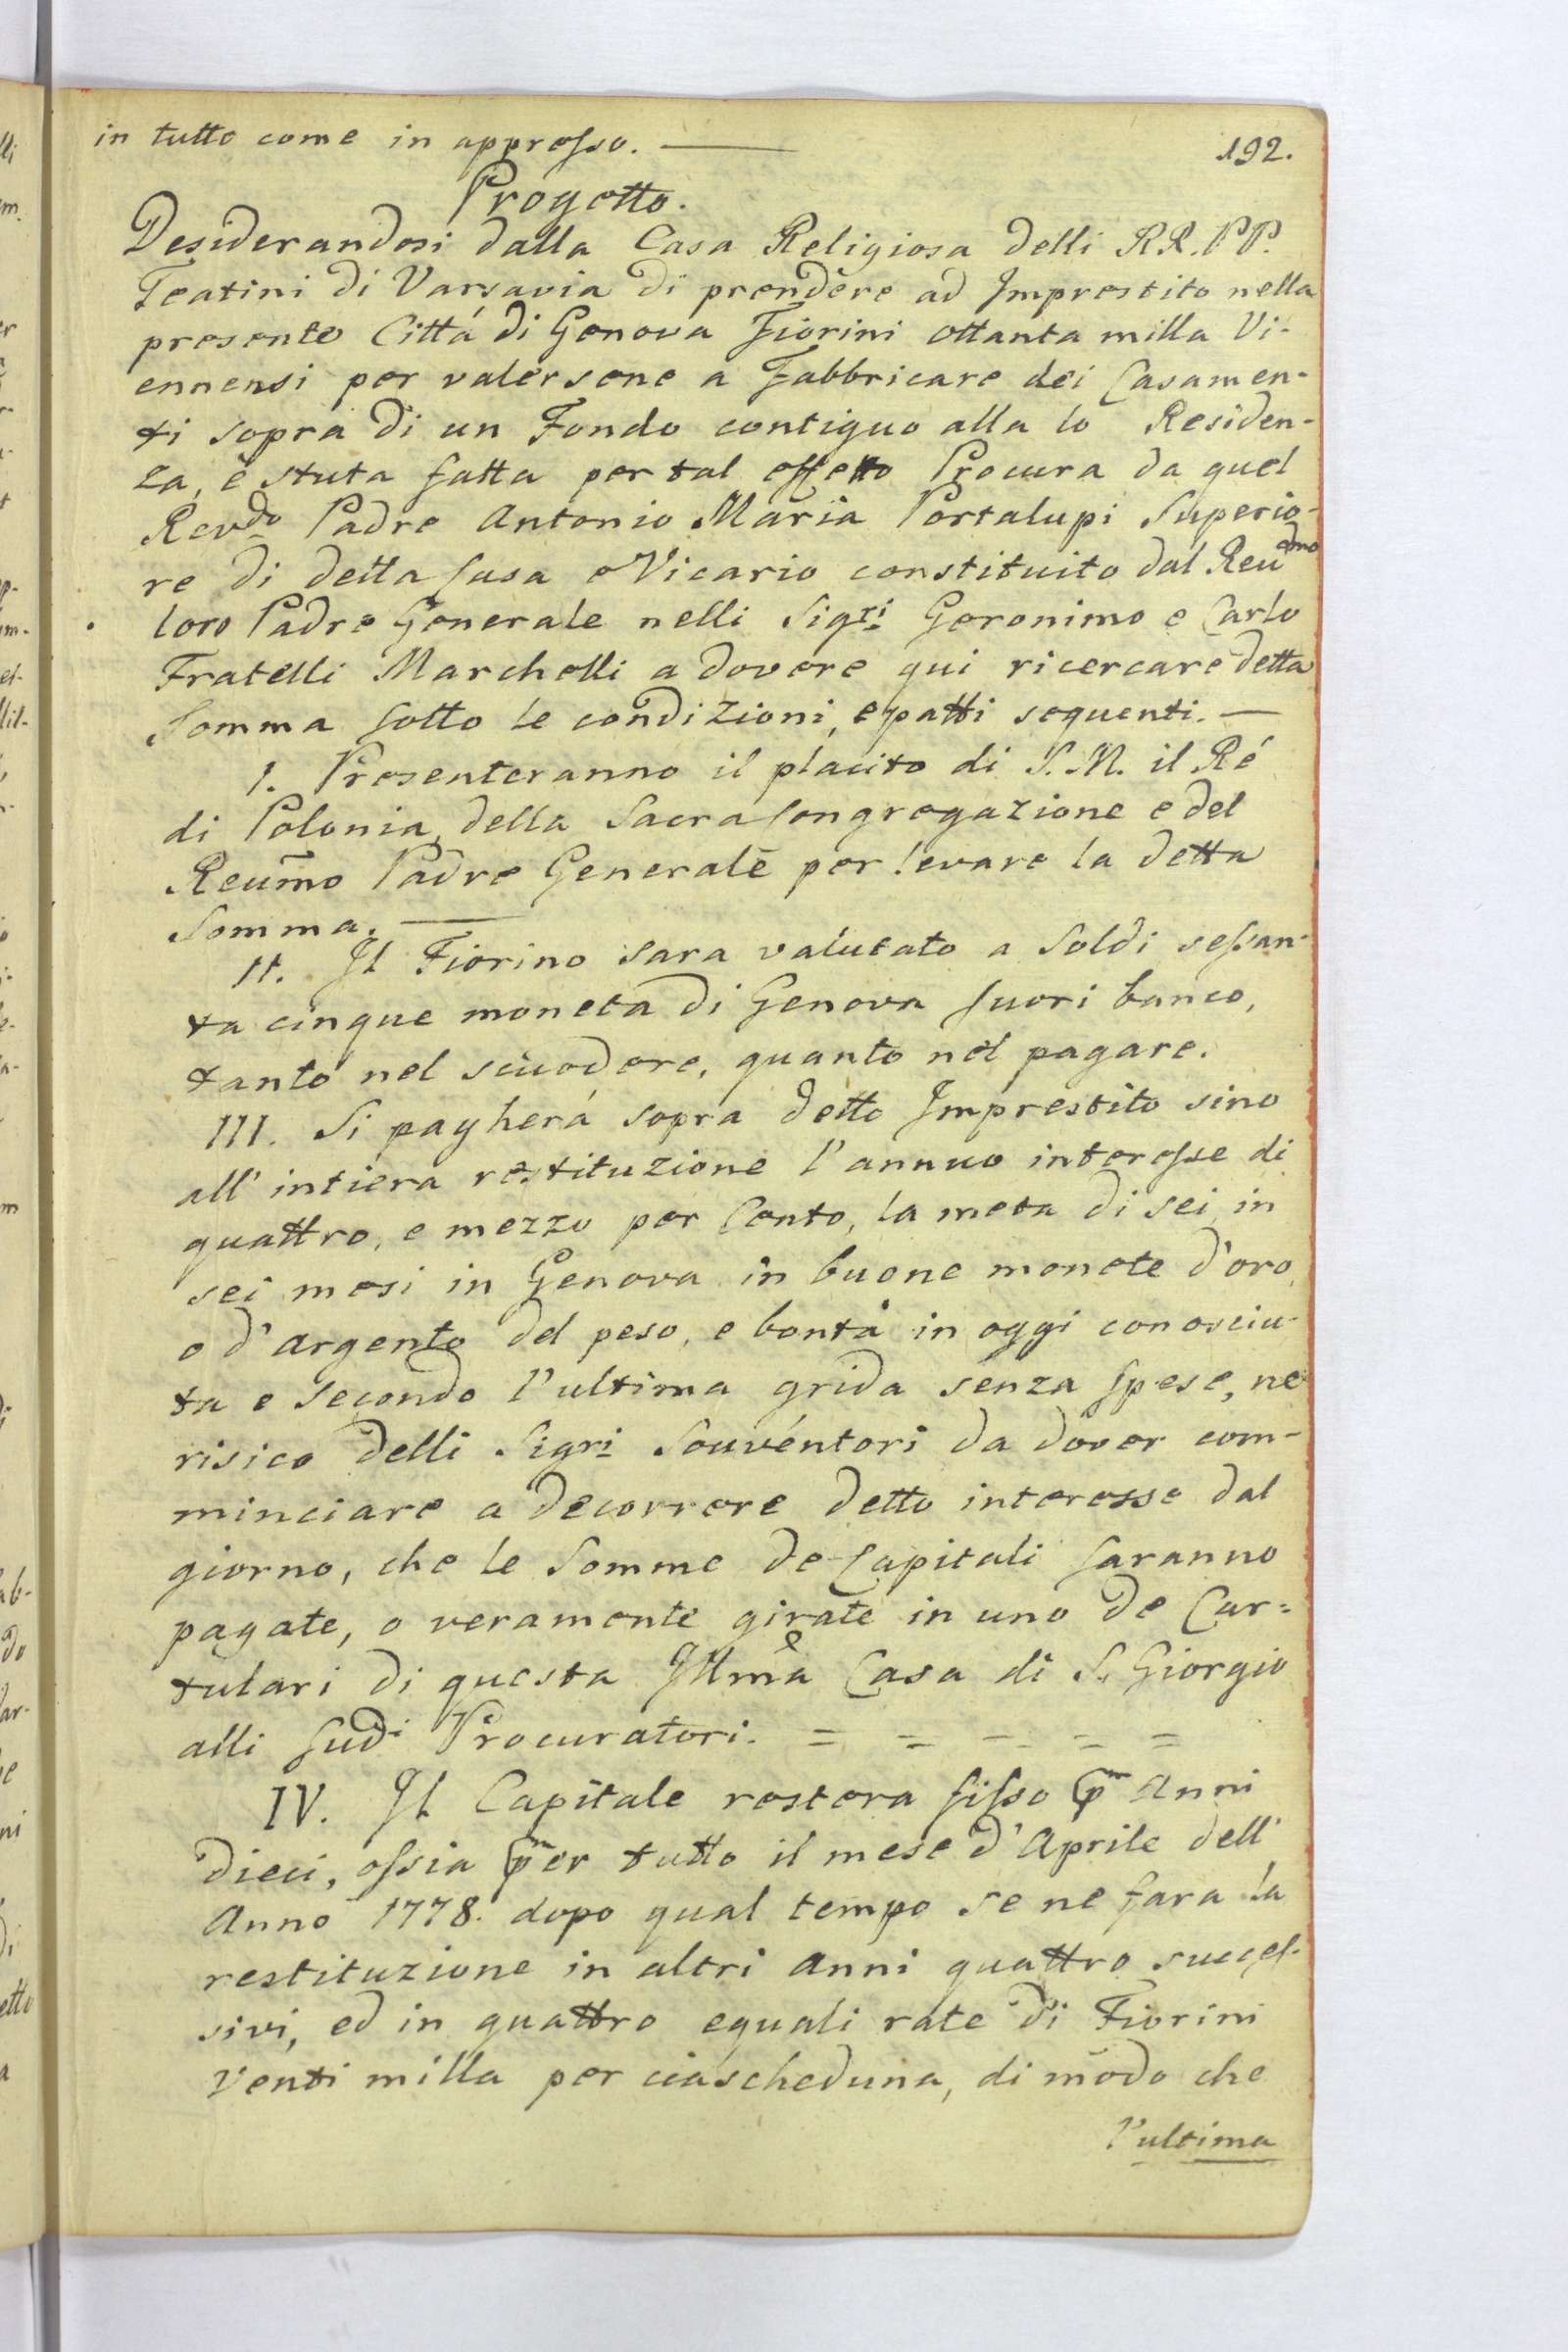 in tutto come in appresso. — 192.
Progetto.
Desiderandosi dalla Casa Religiosa delli RR.PP.
Teatini di Varsavia di prendere ad Imprestito nella
presente Cittá di Genova Fiorini ottanta milla Vi-
ennensi per valersene a Fabbricare dei Casamen-
ti sopra di un Fondo contiguo alla lo Residen-
za, è stata fatta per tal effetto Procura da quel
Rev.do Padre Antonio Maria Portalupi Superio-
re di detta Casa e Vicario constituito dal Reu.dmo
loro Padre Generale nelli Sig.ri Geronimo e Carlo
Fratelli Marchelli a dovere qui ricercare detta
Somma sotto le condizioni, e patti sequenti. —
I. Presenteranno il placito di S.M. il Ré
di Polonia, della Sacra Congregazione e del
Reum̃o Padre Generale per levare la detta
Somma. —
II. Il Fiorino sara valutato a Soldi sessan-
ta cinque moneta di Genova fuori banco,
tanto nel scuodere, quanto nel pagare.
III. Si pagherá sopra detto Imprestito sino
all' intiera restituzione l'annuo interesse di
quattro, e mezzo per Cento, la meta di sei in
sei mesi in Genova in buone monete d'oro,
o d'argento del peso, e bontà in oggi conosciu-
ta e secondo l'ultima grida senza spese, ne
risico delli Sig.ri Souvéntori da dover com-
minciare a decorrere detto interesse dal
giorno, che le Somme de Capitali saranno
pagate, o veramente girate in uno de Car=
tulari di questa Illm̃a Casa di S. Giorgio
alli sud.i Procuratori. = = = = =
IV. Il Capitale restera fisso p̃ Anni
dieci, ossia per tutto il mese d'Aprile dell'
Anno 1778. dopo qual tempo se ne fara la
restituzione in altri anni quattro succes-
sivi, ed in quattro equali rate di Fiorini
Venti milla per ciascheduna, di modo che
l'ultima